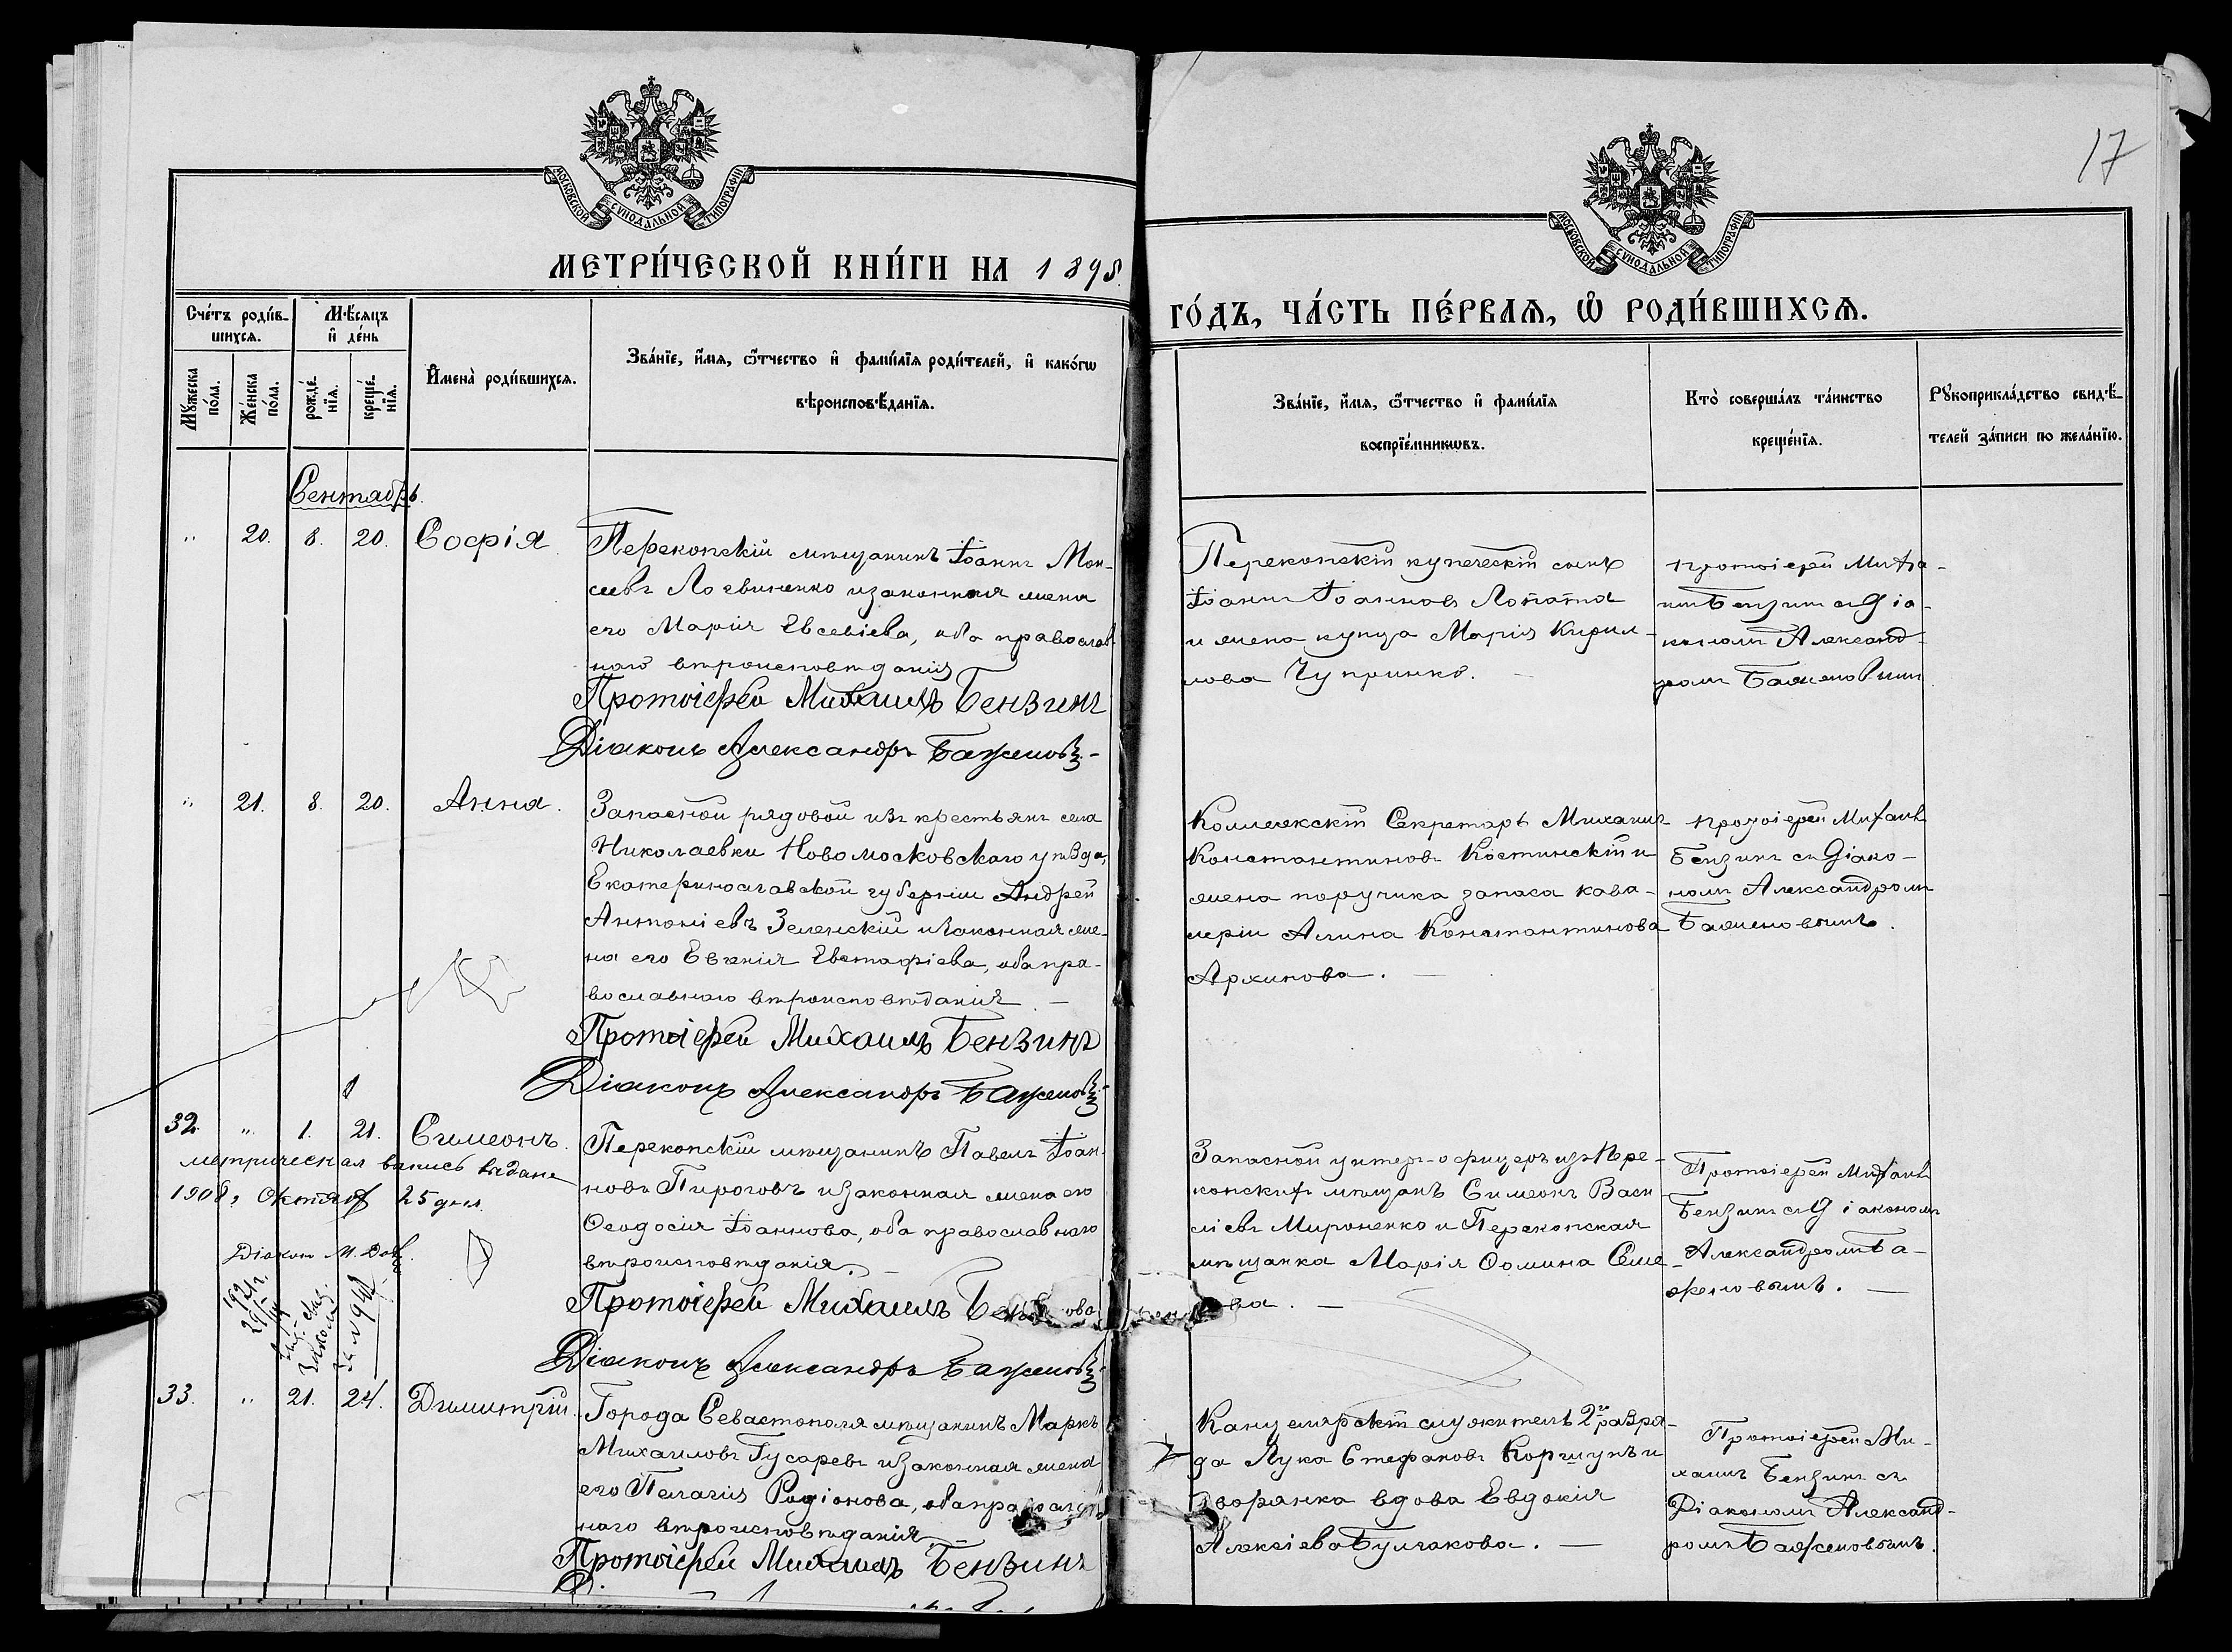 17
МОСКОВСКОЙ СѴНОДАЛЬНОЙ ТИПОГРАФІИ
МОСКОВСКОЙ СѴНОДАЛЬНОЙ ТИПОГРАФІИ
МЕТРИ́ЧЕСКОЙ КНИ́ГИ НА 1898
ГО́ДЪ, ЧА́СТЬ ПЕ́РВАѦ, Ѡ҆ РОДИ́ВШИХСѦ.
Сче́тъ роди́в-
шихсѧ.
Мꙋ́жеска
по́ла.
Же́нска
по́ла.
Мѣ́сѧцъ
и҆ де́нь
рожде́-
нїѧ.
креще́-
нїѧ.
И҆мена̀ роди́вшихсѧ.
Зва́нїе, и҆́мѧ, ѻ҆́тчество и҆ фами́лїѧ роди́телей, и҆ како́гѡ
вѣроисповѣ́данїѧ.
Зва́нїе, и҆́мѧ, ѻ҆́тчество и҆ фами́лїѧ
воспрїе́мникѡвъ.
Кто̀ соверша́лъ та́инство
креще́нїѧ.
Рꙋкоприкла́дство свидѣ́-
телей за́писи по жела́нїю.
Сентябрь.
" 20. 8. 20. Софія
Перекопскій мѣщанинъ Іоаннъ Мои-
сеевъ Логвиненко и законная жена
его Марія Евсевіева, оба православ-
наго вѣроисповѣданія
Протоіерей Михаилъ Бензинъ
Діаконъ Александръ Баженовъ
Перекопскій купеческій сынъ
Іоаннъ Іоанновъ Лопата
и жена купца Марія Кирил-
лова Чупринко.
Протоіерей Миха-
илъ Бензинъ съ Діа-
кономъ Александ-
ромъ Баженовымъ
" 21. 8. 20. Анна.
Запасной рядовой изъ крестьянъ села
Николаевки Новомосковскаго уѣзда,
Екатеринославской губерніи Андрей
Антоніевъ Зеленскій и законная же-
на его Евгенія Евстафіева, оба пра-
вославнаго вѣроисповѣданія
Протоіерей Михаилъ Бензинъ
Діаконъ Александръ Баженовъ
Коллежскій Секретарь Михаилъ
Константиновъ Костинскій и
жена поручика запаса кава-
леріи Алина Константинова
Архипова.
Протоіерей Михаилъ
Бензинъ съ Діако-
номъ Александромъ
Баженовымъ.
32. " 1. 21. Симеонъ.
метрическая выпись выдана
1908 г. Октяб 25 дня
Діаконъ М.
1921 г.
Перекопскій мѣщанинъ Павелъ Іоан-
новъ Пироговъ и законная жена его
Ѳеодосія Іоаннова, оба православнаго
вѣроисповѣданія.
Протоіерей Михаилъ
Діаконъ Александръ Баженовъ
Запасной унтеръ-офицеръ изъ Пере-
копскихъ мѣщанъ Симеонъ Васи-
ліевъ Мироненко и Перекопская
мѣщанка Марія Ѳомина Семе-
Протоіерей Михаилъ
Бензинъ съ Діакономъ
Александромъ Ба-
женовымъ.
33. " 21. 24. Димитрій.
Города Севастополя мѣщанинъ Маркъ
Михаиловъ Гусаревъ и законная жена
его Пелагія Родіонова, оба православ-
наго вѣроисповѣданія
Протоіерей Михаилъ Бензинъ
Канцелярскій служитель 2го разря-
да Лука Стефановъ Коршунъ и
дворянка вдова Евдокія
Алексіева Булгакова.
Протоіерей Ми-
хаилъ Бензинъ съ
Діакономъ Александ-
ромъ Баженовымъ.